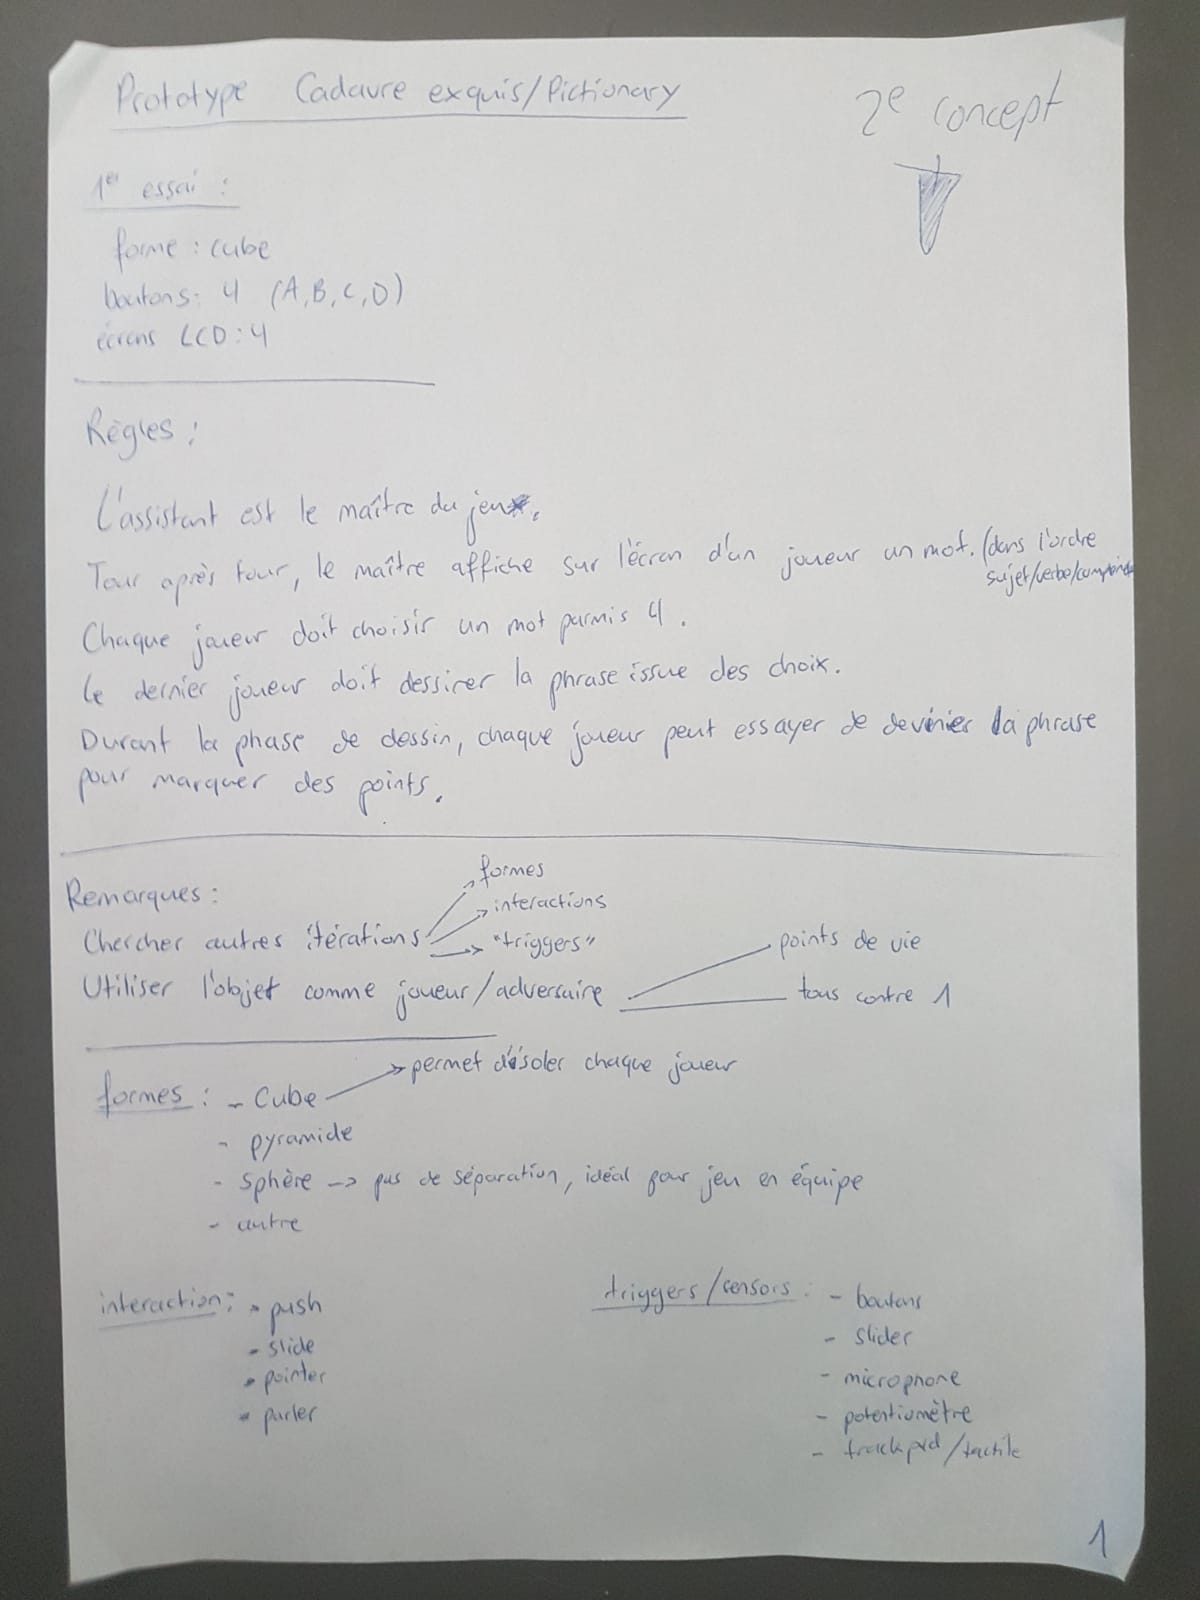 Prototype Cadavre exquis/Pictionary
2e concept
1er essai :
forme : cube
boutons: 4 (A,B,C,D)
écrans LCD: 4
Règles :
L'assistant est le maître du jeu.
Tour après tour, le maître affiche sur l'écran d'un joueur un mot. (dans l'ordre
sujet/verbe/complément
Chaque joueur doit choisir un mot parmis 4.
Le dernier joueur doit dessiner la phrase issue des choix.
Durant la phase de dessin, chaque joueur peut essayer de deviner la phrase
pour marquer des points.
Remarques :
formes
interactions
Chercher autres itérations "triggers"
points de vie
Utiliser l'objet comme joueur/adversaire
tous contre 1
permet d'isoler chaque joueur
formes : - Cube
- pyramide
- sphère -> pas de séparation, idéal pour jeu en équipe
- autre
interaction: - push
- slide
- pointer
- parler
triggers/sensors : - boutons
- slider
- microphone
- potentiomètre
- trackpad/tactile
1